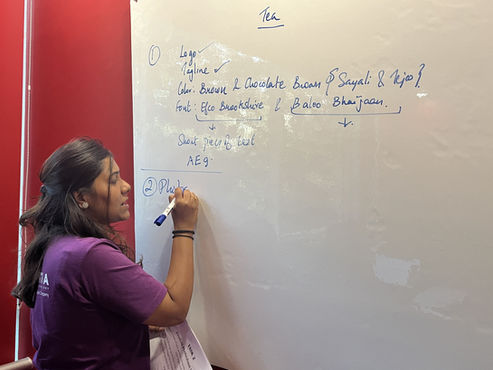 Tea
① Logo ✓
Tagline ✓
Color: Brown & Chocolate Brown { Sayali & Tejoo }
Font: Efco Brookshire & Baloo Bhaijaan.
Short piece of text
A E g
② Photo